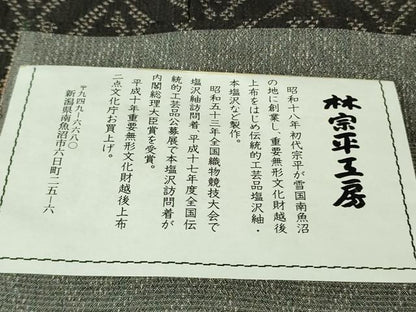 林宗平工房
昭和十八年初代宗平が雪国南魚沼
の地に創業し、重要無形文化財越後
上布をはじめ伝統的工芸品塩沢紬・
本塩沢など製作。
昭和五十三年全国織物競技大会で
塩沢紬訪問着、平成十七年度全国伝
統的工芸品公募展で本塩沢訪問着が
内閣総理大臣賞を受賞。
平成十年重要無形文化財越後上布
二点文化庁お買上げ。
〒九四九-六六八〇
新潟県南魚沼市六日町二二五-六